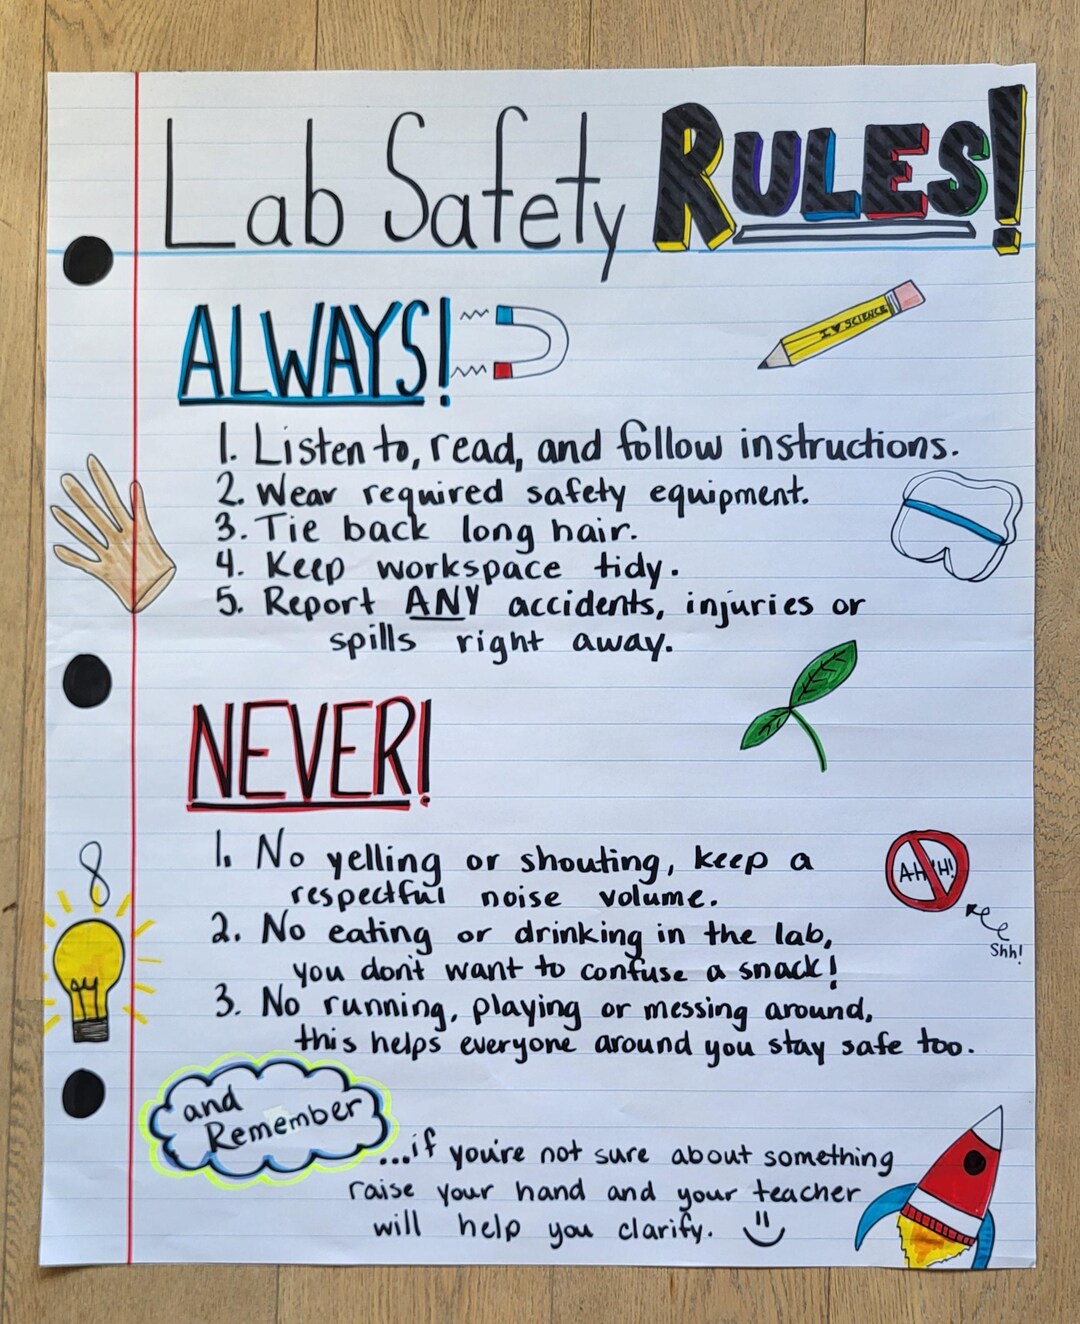 Lab Safety RULES!
ALWAYS!
I ♥ SCIENCE
1. Listen to, read, and follow instructions.
2. Wear required safety equipment.
3. Tie back long hair.
4. Keep workspace tidy.
5. Report ANY accidents, injuries or
spills right away.
NEVER!
1. No yelling or shouting, keep a
respectful noise volume.
AHHH!
Shh!
2. No eating or drinking in the lab,
you don't want to confuse a snack!
3. No running, playing or messing around,
this helps everyone around you stay safe too.
and
Remember
...if you're not sure about something
raise your hand and your teacher
will help you clarify.